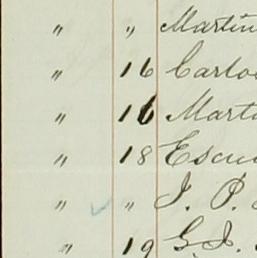 " " Martin
" 16 Carlos
" 16 Marta
" 18
" " J. P.
" 19 G. J.